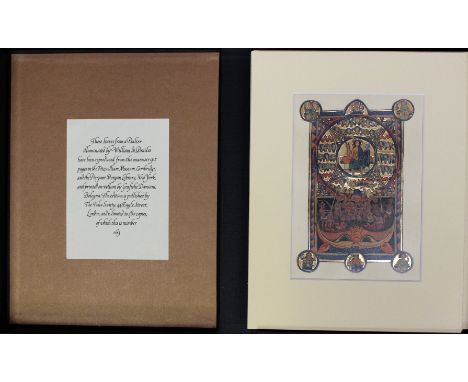 These leaves from a Psalter
illuminated by William de Brailes
have been reproduced from the manuscript
pages in the Fitzwilliam Museum, Cambridge,
and the Pierpont Morgan Library, New York,
and printed on vellum by Grafiche Damiani,
Bologna. The edition is published by
The Folio Society, 44 Eagle Street,
London, and is limited to 480 copies,
of which this is number